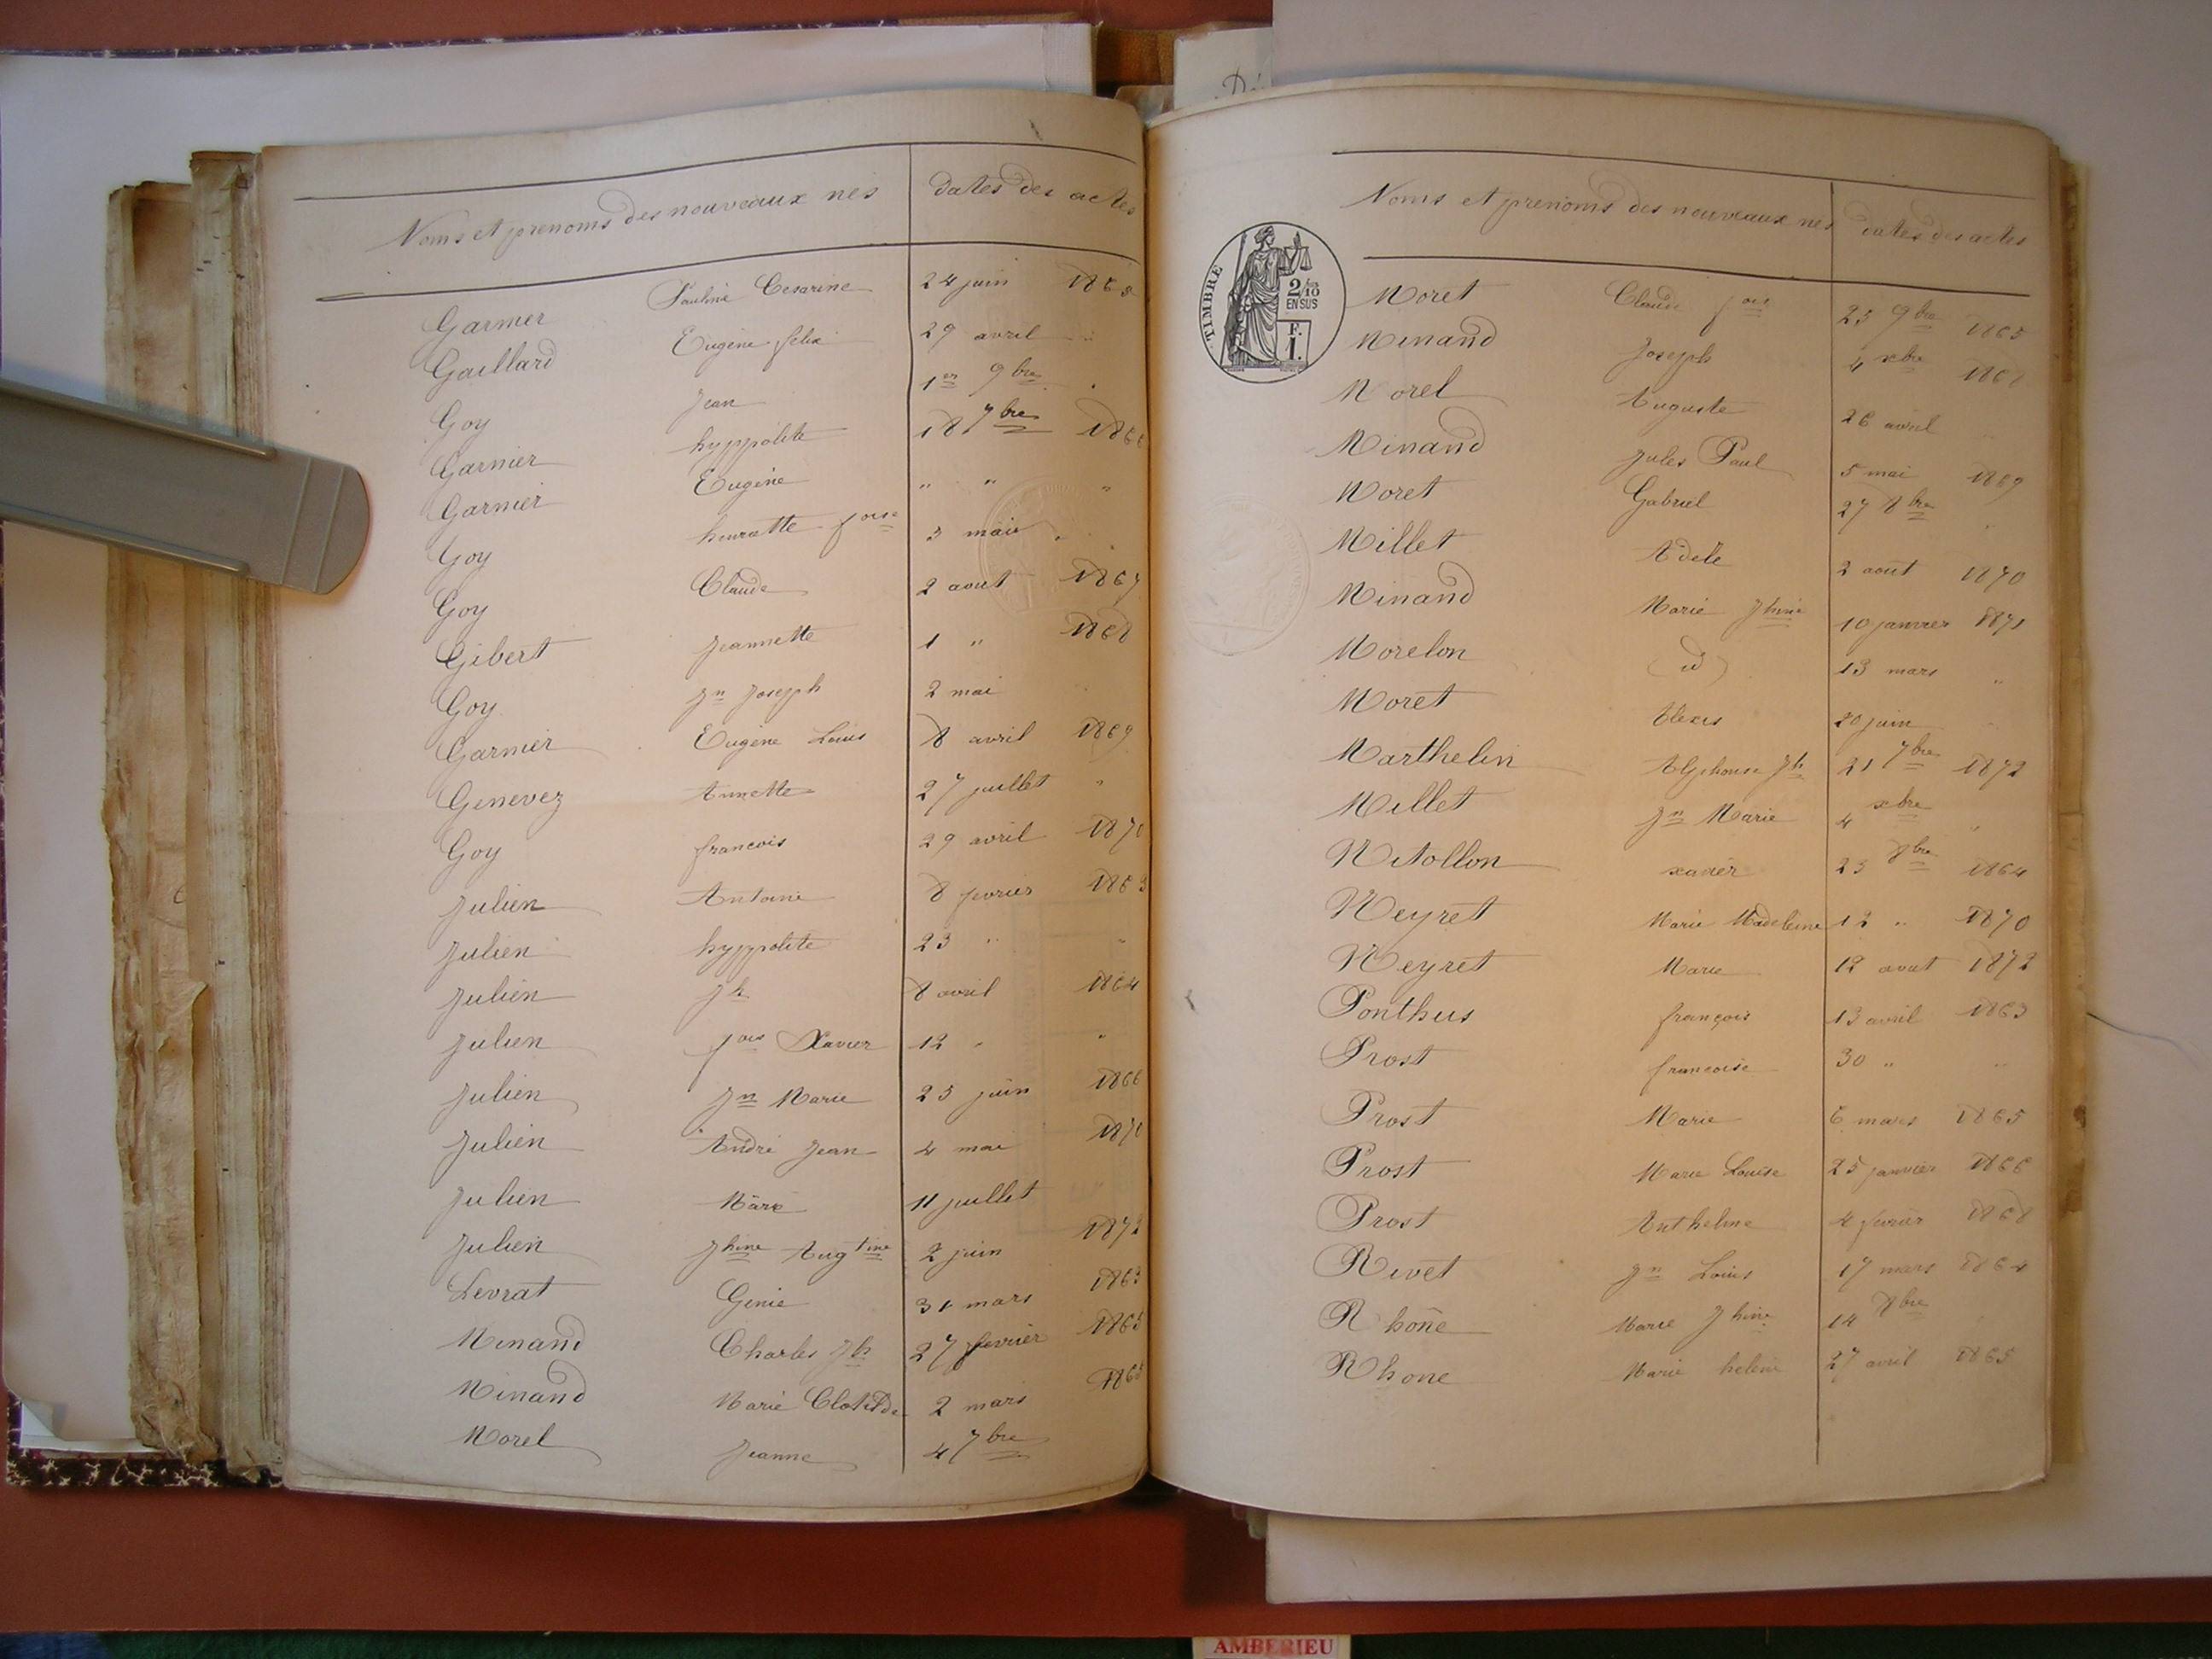 Noms et prenoms des nouveaux nés dates des actes
Garnier Pauline Cesarine 24 juin
Gaillard Eugène felix 29 avril "
Goy Jean 1er 9bre "
Garnier hyppolite 18 7bre 1866
Garnier Eugène " " "
Goy henriette foise 3 "
Goy Claude 2 aout 1867
Gibert Jeannette 1 " 1868
Goy Jn Joseph 2 mai
Garnier Eugène Louis 8 avril 1869
Genevez Annette 27 juillet "
Goy francois 29 avril 1870
Julien Antoine 8 fevrier 1863
Julien hyppolite 23 " "
Julien Jh 8 avril 1864
Julien fois Xavier 12 " "
Julien Jn Marie 25 juin 1866
Julien André Jean 4 mai 1870
Julien Marie 11 juillet
Julien Jhine Augtine 2 juin 1872
Levrat Genie 31 mars 1863
Minand Charles Jh 27 fevrier 1865
Minand Marie Clotilde 2 mars 1865
Morel Jeanne 4 7bre
TIMBRE
2/10
EN SUS
F.
1.
Noms et prenoms des nouveaux nés dates des actes
Moret Claude fois 23 9bre 1865
Minand Joseph 4 xbre 1868
Morel Auguste 26 avril "
Minand Jules Paul 5 mai 1869
Moret Gabriel 27 8bre "
Millet Adele 2 août 1870
Minand Marie Jhine 10 janvier 1871
Morelon (id) 13 mars "
Moret Alexis 20 juin "
Marthelin Alphonse Jh 21 7bre 1872
Millet Jn Marie 4 xbre "
Nitollon xavier 23 8bre 1864
Neyret Marie Madeleine 12 " 1870
Neyret Marie 12 aout 1872
Ponthus françois 13 avril 1863
Prost francoise 30 " "
Prost Marie 6 mars 1865
Prost Marie Louise 25 janvier 1866
Prost Anthelme 4 fevrier 1868
Rivet Jn Louis 17 mars 1864
Rhône Marie Jhine 14 8bre "
Rhone Marie helene 27 avril 1865
AMBERIEU